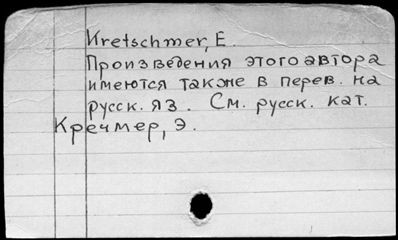 Kretschmer, E.
Произведения этого автора
имеются также в перев. на
русск. яз. См. русск. кат.
Кречмер, Э.